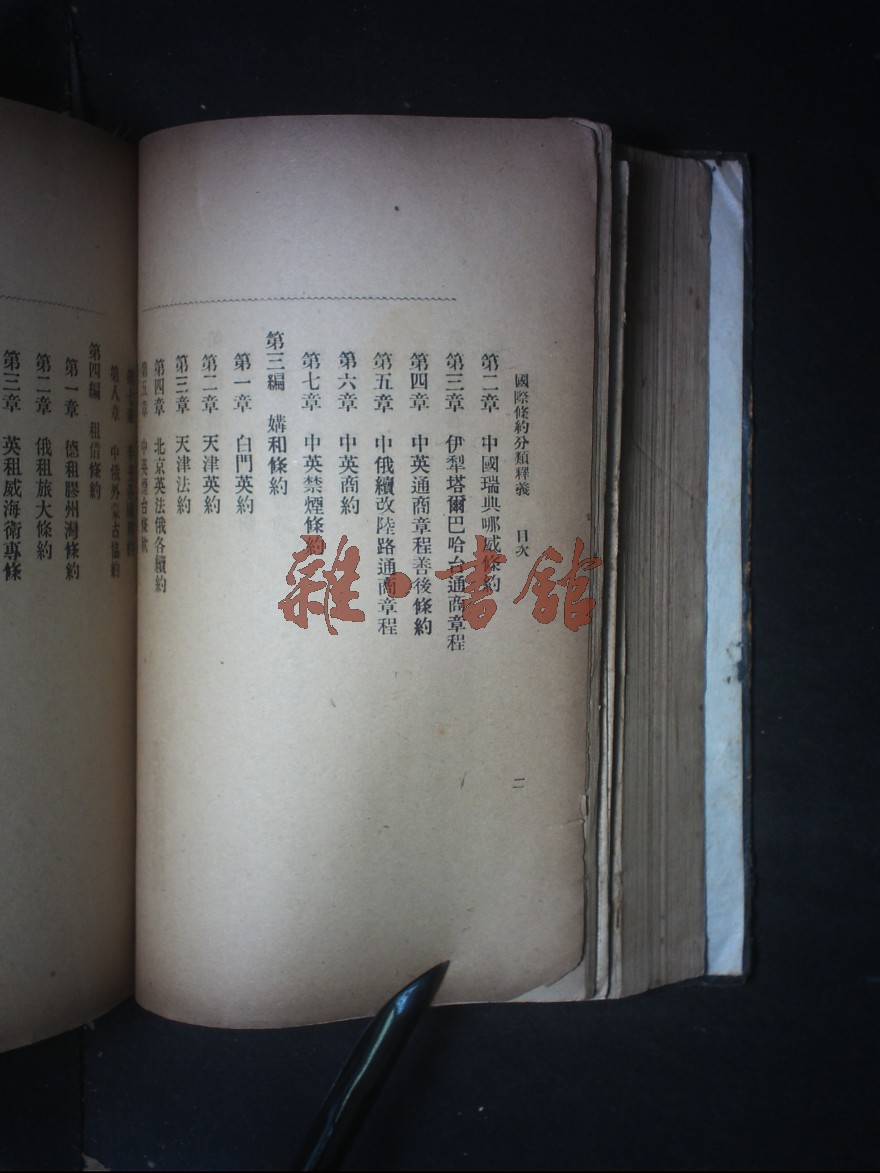 國際條約分類釋義 目次 二
第二章 中國瑞典哪威條約
第三章 伊犁塔爾巴哈台通商章程
第四章 中英通商章程善後條約
第五章 中俄續改陸路通商章程
第六章 中英商約
第七章 中英禁煙條約
第三編 媾和條約
第一章 白門英約
第二章 天津英約
第三章 天津法約
第四章 北京英法俄各續約
第五章 中英煙台條款
第八章 中俄外蒙古協約
第四編 租借條約
第一章 德租膠州灣條約
第二章 俄租旅大條約
第三章 英租威海衛專條
雜·書館